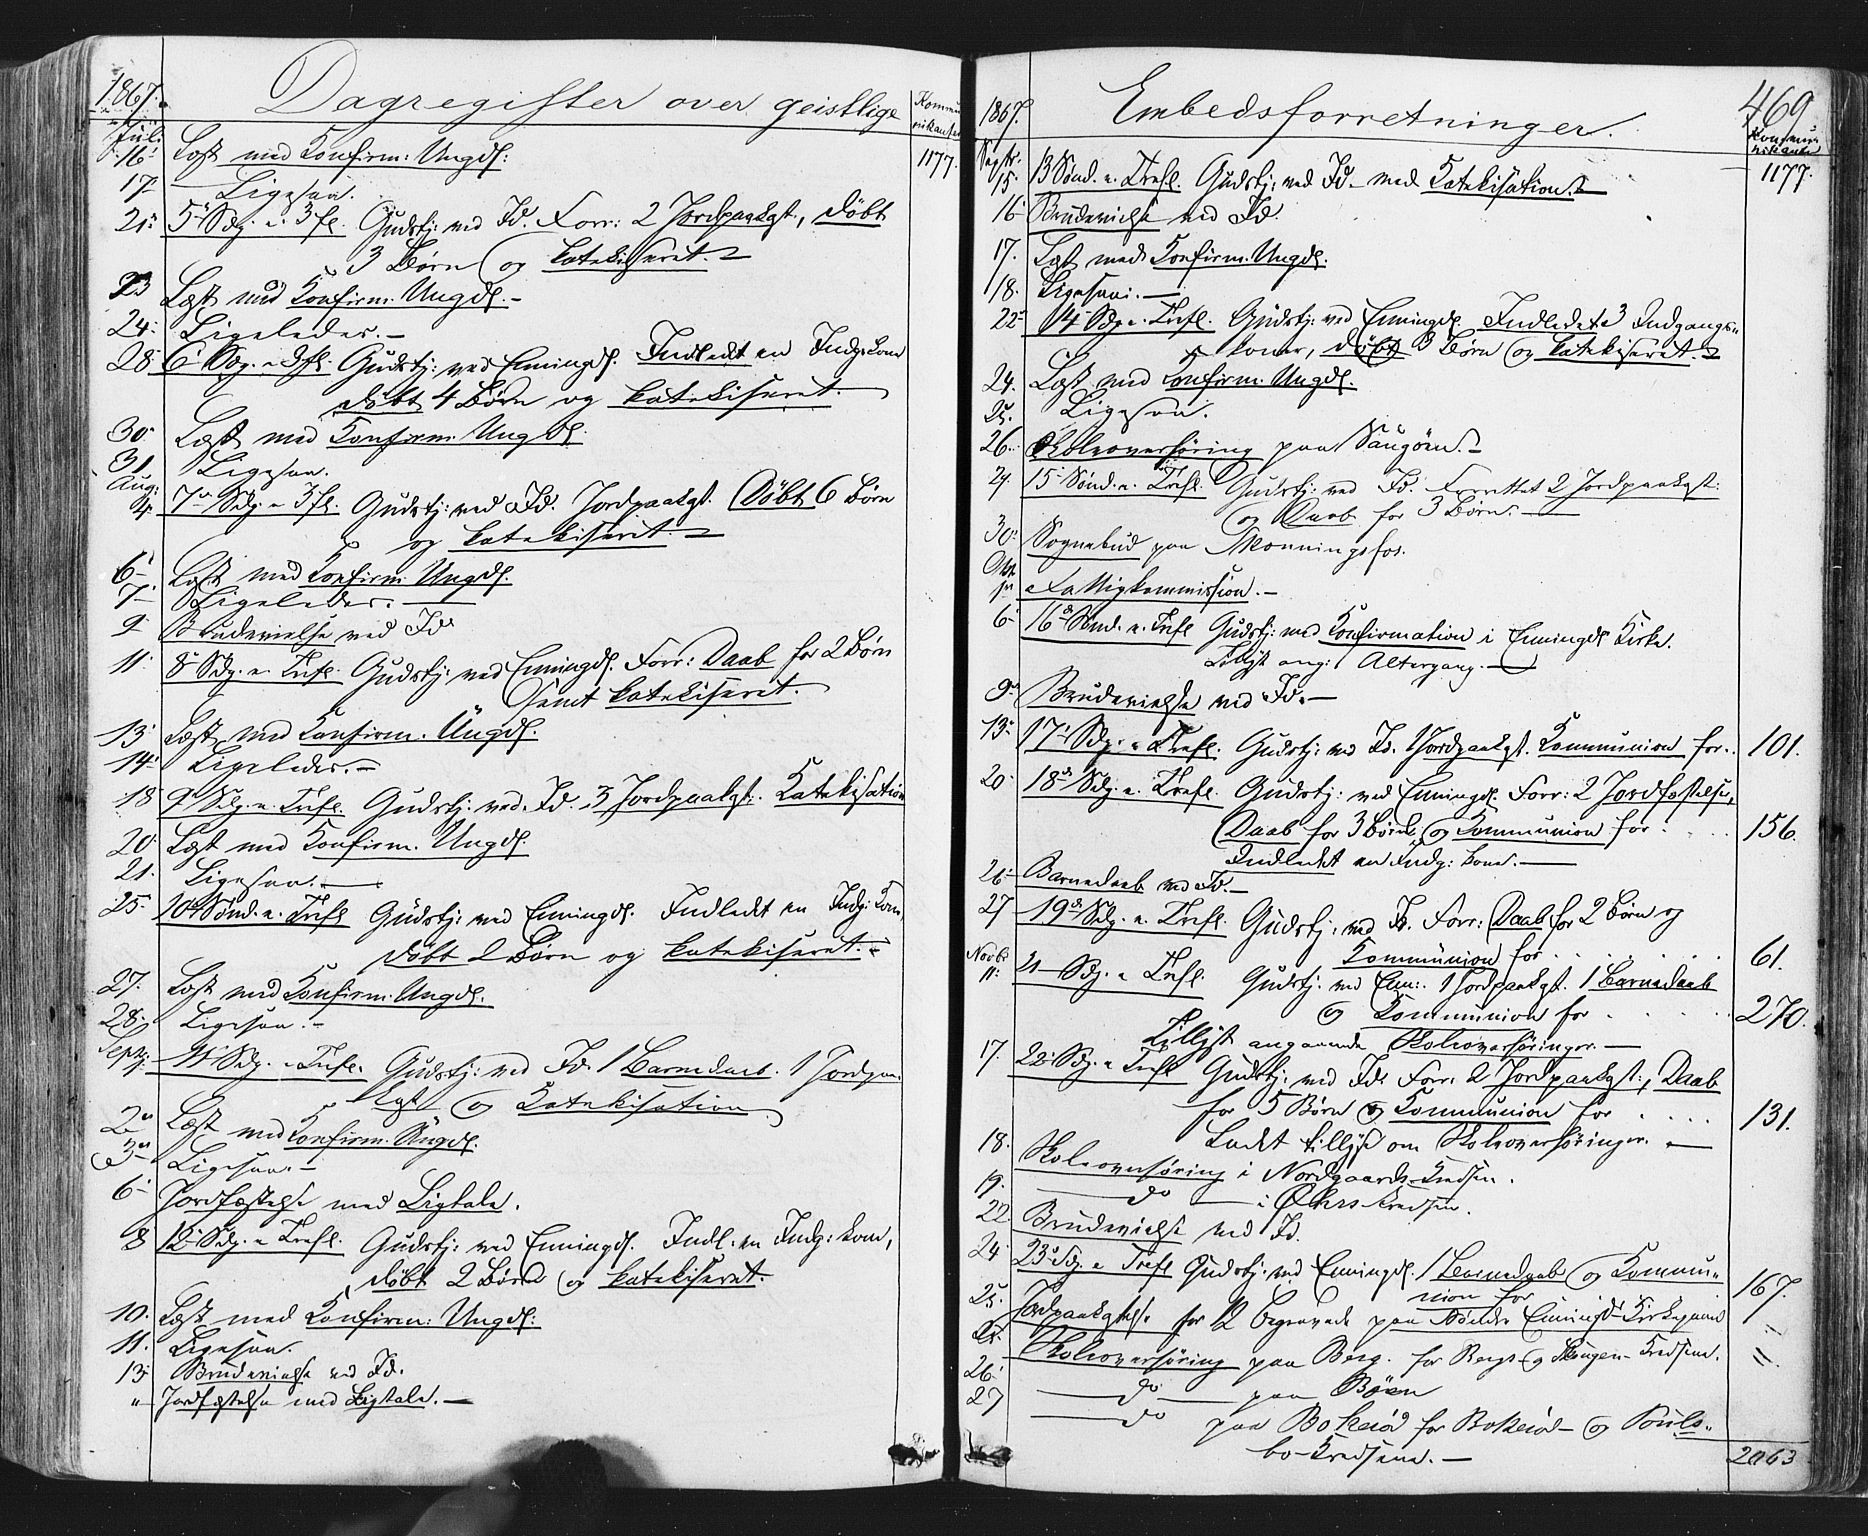 1867.
Dagregister over geistlige
Kommu
nikanter
Juli
16. Læst med Konfirm: Ungd:
1177.
17. Ligesaa.
21. 5 Sdg. e. 3fl. Gudstj: ved Id. Forr: 2 Jordpaakst, døbt
3 Børn og katekiseret.
23 Læst med Konfirm. Ungd.
24. Ligeledes.
28 6 Sdg. e. 3fl. Gudstj: ved Enningd. Indledt en Indg: kone
døbt 4 Børn og katekiseret.
30. Læst med Konfirm. Ungd.
31. Ligesaa.
Aug:
4. 7 Sdg. e. 3fl. Gudstj: ved Id. Jordpaakst. Døbt 6 Børn
og katekiseret.
6 Læst med Konfirm. Ungd.
7 Ligeledes.
9 Brudevielse ved Id.
11. 8 Sdg. e. Trefl. Gudstj: ved Enningd. Forr: Daab for 2 Børn
samt katekiseret.
13. Læst med Konfirm. Ungd.
14. Ligeledes.
18 9 Sdg. e. Trefl. Gudstj: ved Id. 3 Jordpaakst. Katekisation
20. Læst med Konfirm. Ungd.
21. Ligesaa.
25. 10 Sønd. e. Trefl Gudstj: ved Enningd. Indledt en Indg: Kone,
døbt 2 Børn og katekiseret.
27. Læst med Konfirm. Ungd.
28. Ligesaa.
Septr.
1. 11 Sdg. e. Trefl. Gudstj: ved Id. 1 Barnedaab. 1 Jordpaa-
kst og Katekisation.
2 Læst med Konfirm. Ungd.
3 Ligesaa.
6 Jordfæstelse med Ligtale.
8 12 Sdg. e. Trefl. Gudstj: ved Enningd. Indl. en Indg: kone,
døbt 2 Børn og katekiseret.
10. Læst med Konfirm: Ungd:
11. Ligesaa.
13 Brudevielse ved Id.
" Jordfæstelse med Ligtale.
1867.
Embedsforretninger.
469
Kommu-
nikanter
Septr.
15. 13 Sønd. e. Trefl. Gudstj: ved Id. med Katekisation.
1177.
16 Brudevielse ved Id.
17. Læst med Konfirm. Ungd.
18. Ligesaa.
22 14 Sdg. e. Trefl. Gudstj: ved Enningd. Indledet 3 Indgangs-
koner, døbt 3 Børn og katekiseret.
24. Læst med Konfirm. Ungd.
25. Ligesaa.
26. Skoleoverhøring paa Saugøen.
29. 15 Sønd. e. Trefl. Gudstj: ved Id. Forrettet 2 Jordpaakst:
og Daab for 3 Børn.
30. Sognebud paa Monningsfos.
Oktr
Fattigkommission.
6 16 Sønd. e. Trefl Gudstj: med Konfirmation i Enningd. Kirke.
Tillyst ang: Altergang.
9. Brudevielse ved Id.
13. 17 Sdg. e. Trefl. Gudstj: ved Id. 1 Jordpaakst. Kommunion for.. 101.
20 18 Sdg. e. Trefl. Gudstj: ved Enningd. Forr: 2 Jordfæstelse,
Daab for 3 Børn og Kommunion for . . . . 156.
Indledet en Indg: kone.
26. Barnedaab ved Id.
27 19 Sdg. e. Trefl. Gudstj: ved Id. Forr: Daab for 2 Børn og
Kommunion for . . . . . . 61.
Novbr
11. 21 Sdg. e. Trefl. Gudstj. ved Enn:. 1 Jordpaakst. 1 Barnedaab
og Kommunion for . . . . . 270.
Tillyst angaaende Skoleoverhøringer.
17. 22 Sdg. e. Trefl Gudstj: ved Id. Forr. 2 Jordpaakst:, Daab
for 5 Børn og Kommunion for . . . . 131.
Ladt tillyse om Skoleoverhøringer.
18. Skoleoverhøring i Nordgaards-Kredsen.
19. do i Øbers Kredsen.
22 Brudevielse ved Id.
24 23 Sdg. e. Trefl Gudstj: ved Enningd. 1 Barnedaab og Kommu-
nion for 167.
25. Jordpaakstelse for 12 begravede paa Enningd. Kirkegaard "
Skoleoverhøring paa Berg. for Bergs og Skougen-Kredsene. "
26. do paa Bøen
27 do paa Bokerød for Bokerød- og Pouls-
bo-Kredsene.
2063